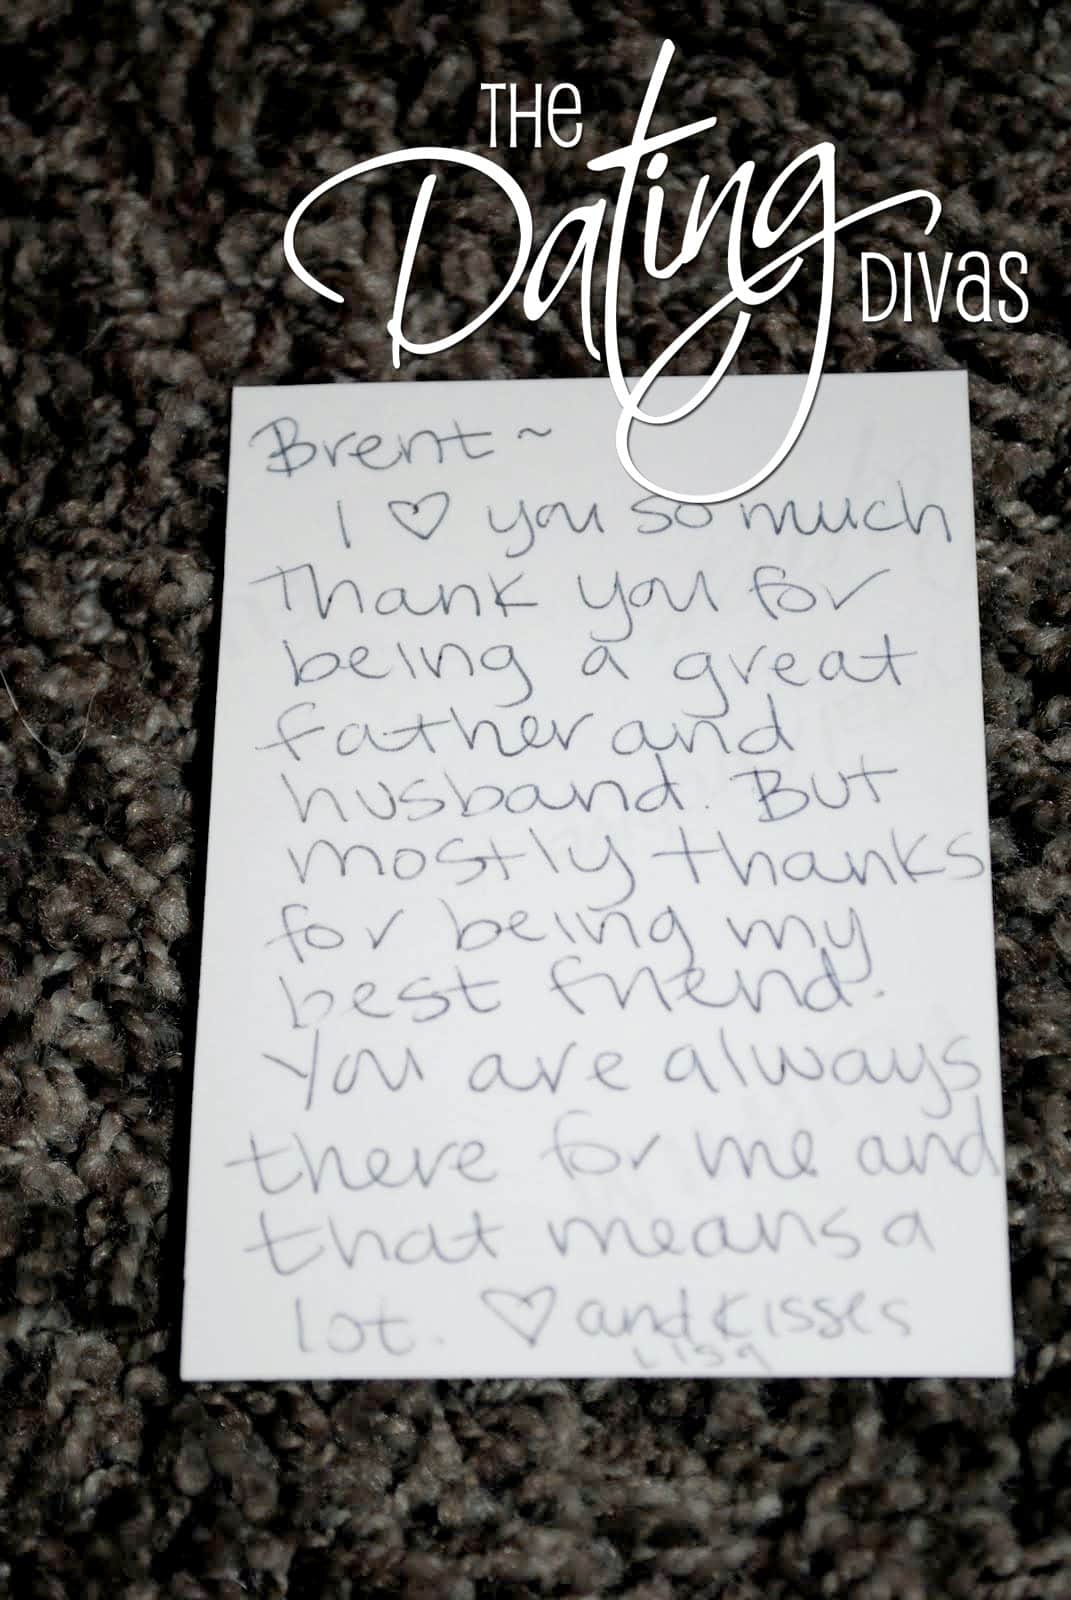 THE
Dating
DIVAS
Brent ~
I ♡ you so much
Thank you for
being a great
father and
husband. But
mostly thanks
for being my
best friend.
You are always
there for me and
that means a
lot. ♡ and kisses
Lisa